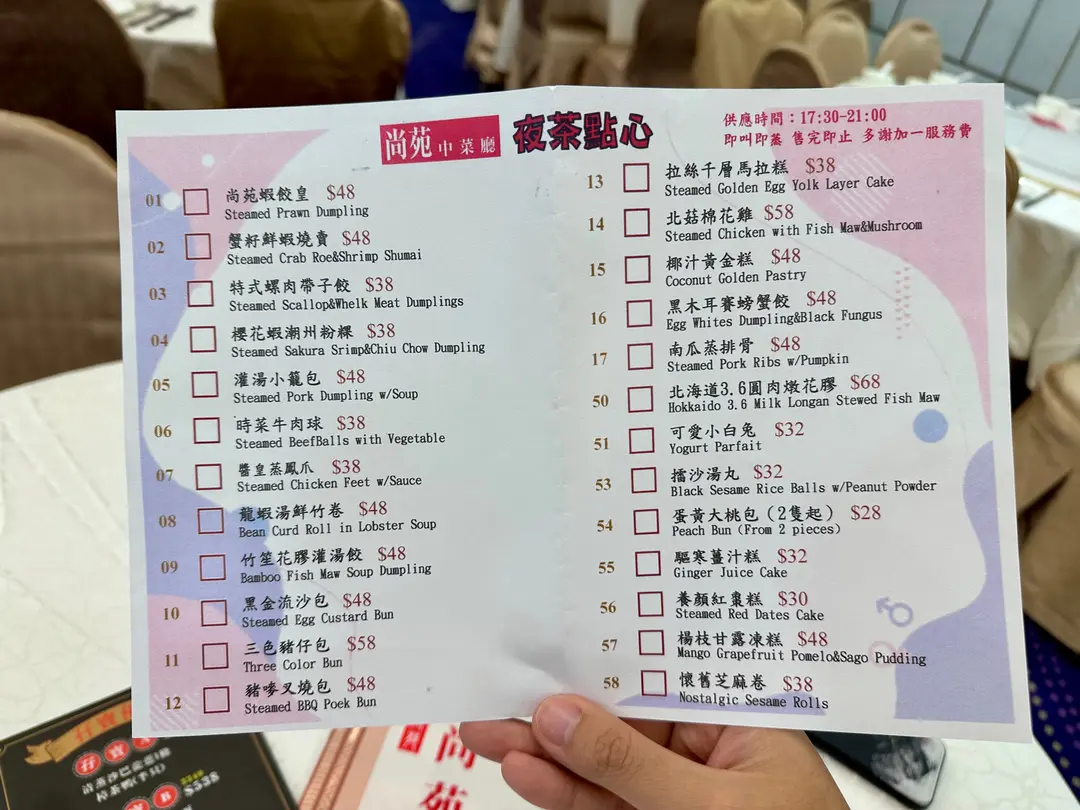 尚苑 中菜廳 夜茶點心
供應時間：17:30-21:00
即叫即蒸 售完即止 多謝加一服務費
01 尚苑蝦餃皇 $48
Steamed Prawn Dumpling
02 蟹籽鮮蝦燒賣 $48
Steamed Crab Roe&Shrimp Shumai
03 特式螺肉帶子餃 $38
Steamed Scallop&Whelk Meat Dumplings
04 櫻花蝦潮州粉粿 $38
Steamed Sakura Srimp&Chiu Chow Dumpling
05 灌湯小籠包 $48
Steamed Pork Dumpling w/Soup
06 時菜牛肉球 $38
Steamed BeefBalls with Vegetable
07 醬皇蒸鳳爪 $38
Steamed Chicken Feet w/Sauce
08 龍蝦湯鮮竹卷 $48
Bean Curd Roll in Lobster Soup
09 竹笙花膠灌湯餃 $48
Bamboo Fish Maw Soup Dumpling
10 黑金流沙包 $48
Steamed Egg Custard Bun
11 三色豬仔包 $58
Three Color Bun
12 豬嘜叉燒包 $48
Steamed BBQ Poek Bun
13 拉絲千層馬拉糕 $38
Steamed Golden Egg Yolk Layer Cake
14 北菇棉花雞 $58
Steamed Chicken with Fish Maw&Mushroom
15 椰汁黃金糕 $48
Coconut Golden Pastry
16 黑木耳賽螃蟹餃 $48
Egg Whites Dumpling&Black Fungus
17 南瓜蒸排骨 $48
Steamed Pork Ribs w/Pumpkin
50 北海道3.6圓肉燉花膠 $68
Hokkaido 3.6 Milk Longan Stewed Fish Maw
51 可愛小白兔 $32
Yogurt Parfait
53 擂沙湯丸 $32
Black Sesame Rice Balls w/Peanut Powder
54 蛋黃大桃包（2隻起） $28
Peach Bun (From 2 pieces)
55 驅寒薑汁糕 $32
Ginger Juice Cake
56 養顏紅棗糕 $30
Steamed Red Dates Cake
57 楊枝甘露凍糕 $48
Mango Grapefruit Pomelo&Sago Pudding
58 懷舊芝麻卷 $38
Nostalgic Sesame Rolls
尚苑
B $538